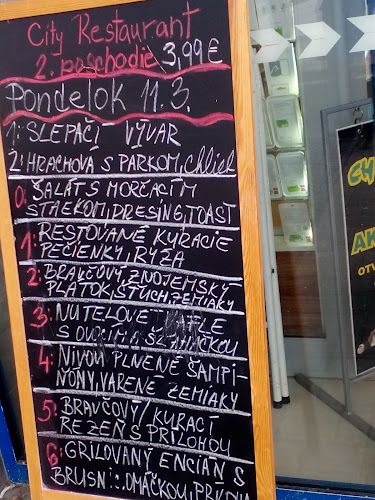 City Restaurant
2. poschodie 3,99€
Pondelok 11.3.
1: SLEPAČÍ VÝVAR
2: HRACHOVÁ S PÁRKOM, chlieb
0: ŠALÁT S MORČACÍM
STAEKOM, DRESING, TOAST
1: RESTOVANÉ KURACIE
PEČIENKY, RYŽA
2: BRAVČOVÝ ZNOJEMSKÝ
PLÁTOK, ŠŤUCH. ZEMIAKY
3: NUTELOVÉ
S OVOCÍM A ŠĽAHAČKOU
4: NIVOU PLNENÉ ŠAMPI-
ŇÓNY, VARENÉ ZEMIAKY
5: BRAVČOVÝ/KURACÍ
REZEŇ S PRÍLOHOU
6: GRILOVANÝ ENCIÁN S
BRUSNIC. OMÁČKOU,
CH
AK
OTV